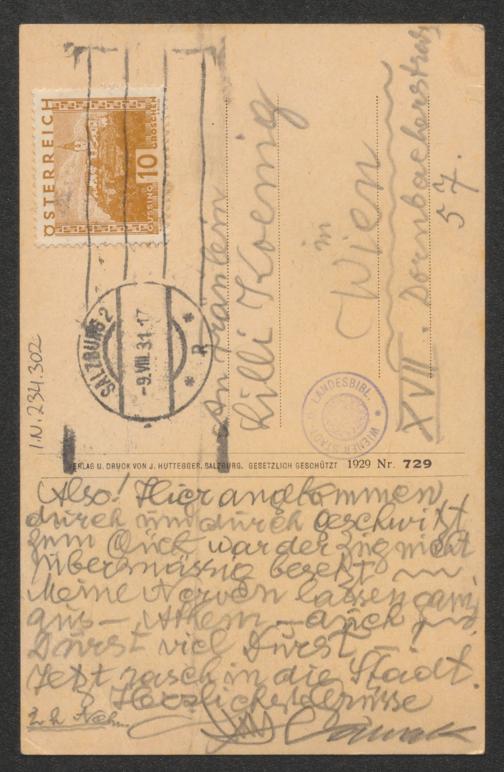 ÖSTERREICH
10
GROSCHEN
GÜSSING
SALZBURG 2
-9.VIII.31.-17
* R *
I.N. 234.302
An Fräulein
Lilli Koenig
in
Wien
XVII. Dornbacherstrasse
57.
LANDESBIBL. * WIENER STADT *
VERLAG U. DRUCK VON J. HUTTEGGER, SALZBURG. GESETZLICH GESCHÜTZT 1929 Nr. 729
Also! Hier angekommen
durch und durch geschwitzt
zum Glück war der Zug nicht
übermässig besetzt
Meine Nerven lassen ganz
aus – Athem – auch
Durst viel Durst –
Jetzt rasch in die Stadt.
Herzlichste Grüsse